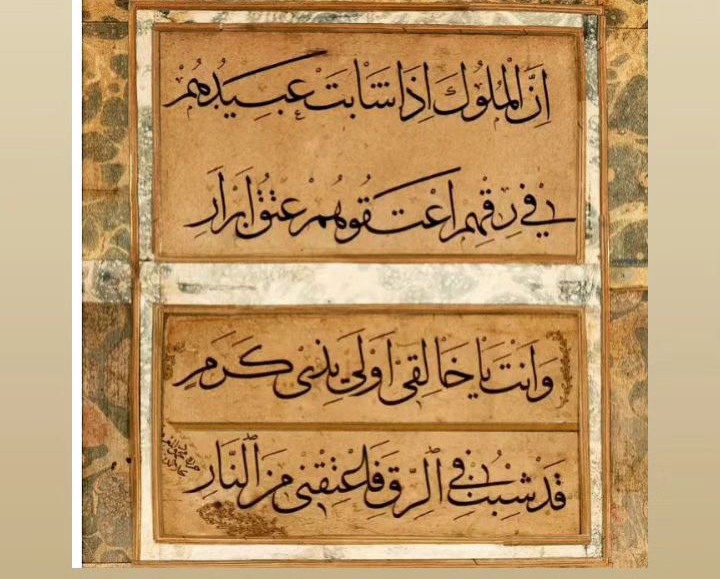 اِنَّ الْمُلُوكَ اِذَا شَابَتْ عَبِيدُهُمْ
فِي رِقِّهِمْ اَعْتَقُوهُمْ عِتْقُ اَبْرَارِ
وَاَنْتَ يَا خَالِقِى اَوْلَى بِذِى كَرَمٍ
قَدْ شِبْتُ فِي الرِّقِّ فَاعْتِقْنِى مِنَ النَّارِ